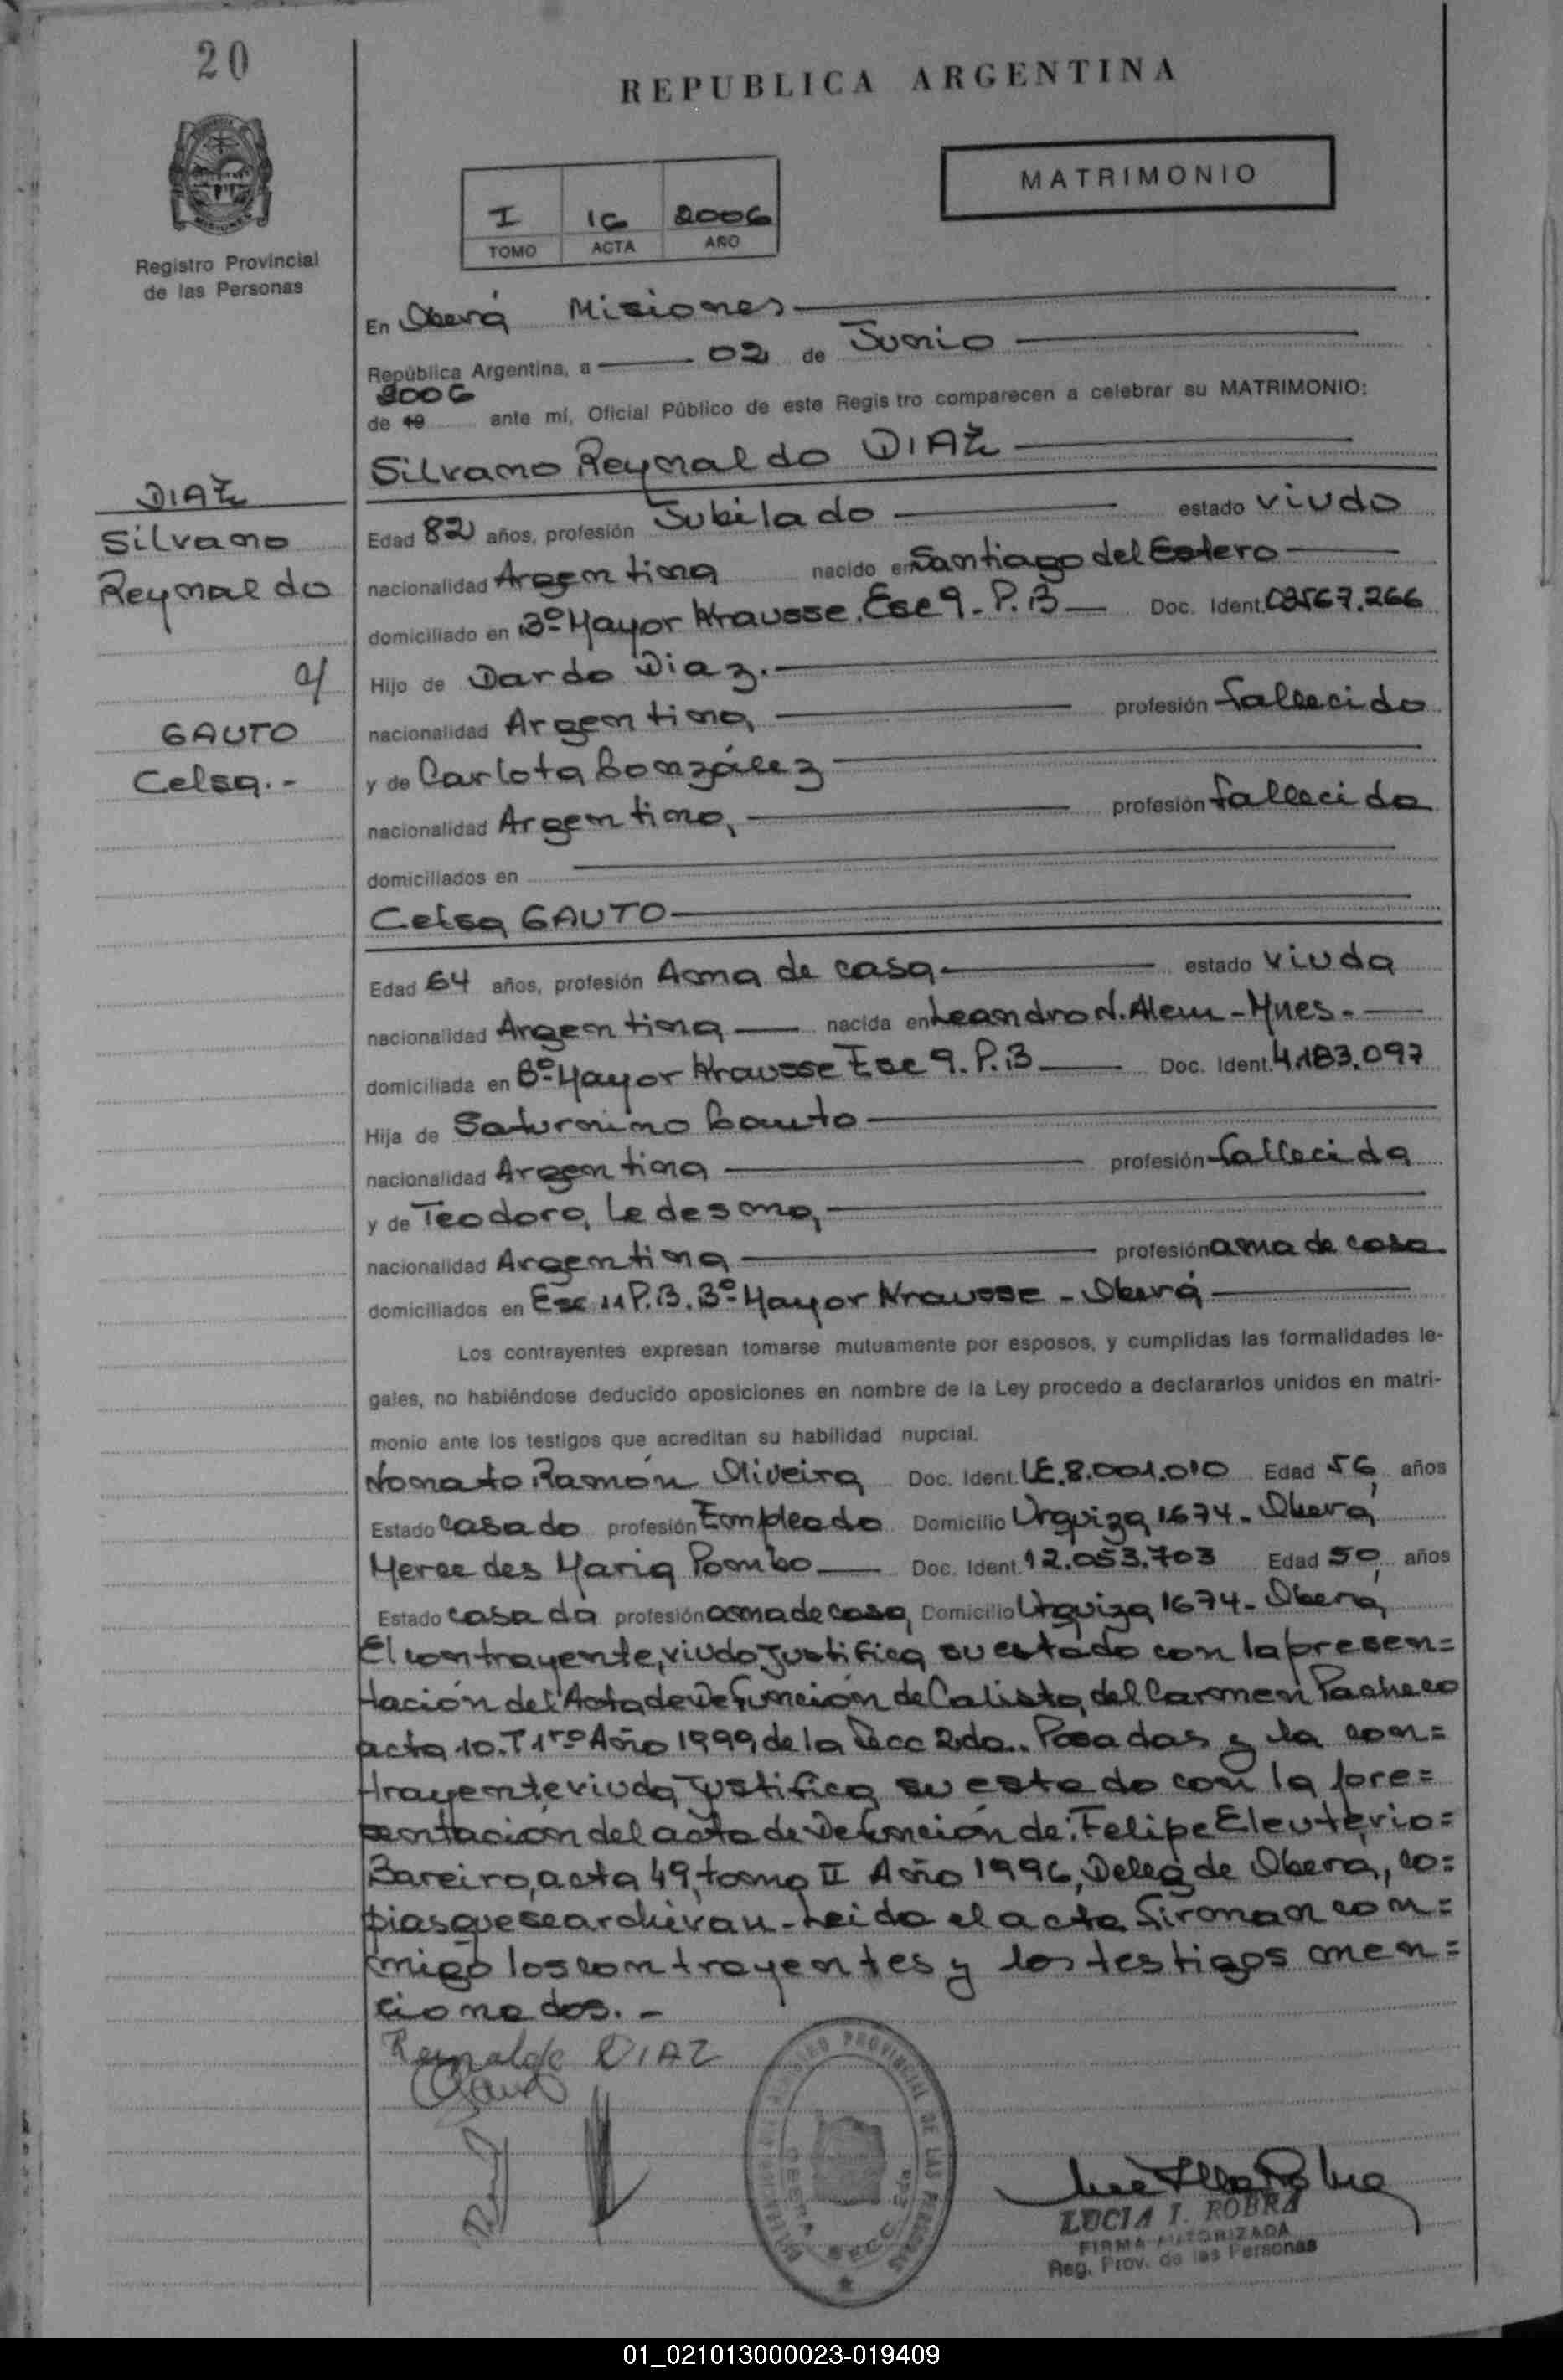 20
REPUBLICA ARGENTINA
MATRIMONIO
I 16 2006
TOMO ACTA AÑO
Registro Provincial
de las Personas
En Oberá Misiones
República Argentina, a 02 de Junio
2006
de 19 ante mí, Oficial Público de este Regis tro comparecen a celebrar su MATRIMONIO:
Silvano Reynaldo DIAZ
DIAZ
Silvano
Reynaldo
c/
GAUTO
Celsa.-
Edad 82 años, profesión Jubilado estado viudo
nacionalidad Argentina nacido en Santiago del Estero
domiciliado en Bº Mayor Krausse. Esc 9. P.B Doc. Ident. 03567.266
Hijo de Dardo Diaz.
nacionalidad Argentina profesión fallecido
y de Carlota González
nacionalidad Argentina profesión fallecida
domiciliados en
Celsa GAUTO
Edad 64 años, profesión Ama de casa estado viuda
nacionalidad Argentina nacida en Leandro N. Alem - Mnes.
domiciliada en Bº Mayor Krausse Esc 9. P.B Doc. Ident. 4.183.097
Hija de Saturnino Gauto
nacionalidad Argentina profesión fallecida
y de Teodora Ledesma
nacionalidad Argentina profesión ama de casa.
domiciliados en Esc 11 P.B. Bº Mayor Krausse - Oberá
Los contrayentes expresan tomarse mutuamente por esposos, y cumplidas las formalidades le-
gales, no habiéndose deducido oposiciones en nombre de la Ley procedo a declararlos unidos en matri-
monio ante los testigos que acreditan su habilidad nupcial.
Nonato Ramón Oliveira Doc. Ident. LE. 8.001.010 Edad 56 años
Estado Casado profesión Empleado Domicilio Urquiza 1674. Oberá
Mercedes María Pombo Doc. Ident. 12.053.703 Edad 50 años
Estado casada profesión ama de casa Domicilio Urquiza 1674. Oberá
El contrayente, viudo justifica su estado con la presen=
tación del Acta de Defunción de Calista del Carmen Pacheco
acta 10. T 1ro Año 1999 de la Secc 2da. Posadas y la con=
trayente viuda justifica su estado con la pre=
sentación del acta de Defunción de: Felipe Eleuterio=
Bareiro, acta 49, tomo II Año 1996, Deleg de Oberá, co=
pias que se archivan - Leida el acta firman con=
migo los contrayentes y los testigos men=
cionados. -
Reynaldo DIAZ
LUCIA I. ROBRA
FIRMA AUTORIZADA
Reg. Prov. de las Personas
01_021013000023-019409